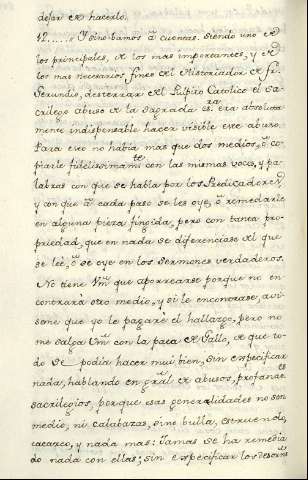 dejar de hacerlo.
12...... Y sino bamos â cuentas. Siendo uno de
los principales, de los mas importantes, y de
los mas necesarios fines del Historiador de fr.
Gerundio, desterrar del Pulpito Catolico el sa-
crilego abuso de la Sagrada Esra. era absoluta
mente indispensable hacer visible este abuso.
Para ese no habia más que dos medios, ô co-
piarle fidelissimamte. con las mismas voces, y pa-
labras con que se habla por los Predicadores,
y con que â cada paso se les oye, ô remedarle
en alguna pieza fingida, pero con tanta pro-
priedad, que en nada se diferenciase del que
se lee, ô se oye en los sermones verdaderos.
No tiene Vm. que aporrearse porque no en-
contrará otro medio, y si le encontrase, aví-
seme que yo le pagaré el hallazgo, pero no
me salga Vm. con la pata de Gallo, de que to-
do se podía hacer mui bien, sin especificar
nada, hablando en gral. de abusos, profanaes.
sacrilegios, porque esas generalidades no son
medio, ni calabazas, sino bulla, estruendo,
cacareo, y nada mas: jamas se ha remedia
do nada con ellas; sin especificar los